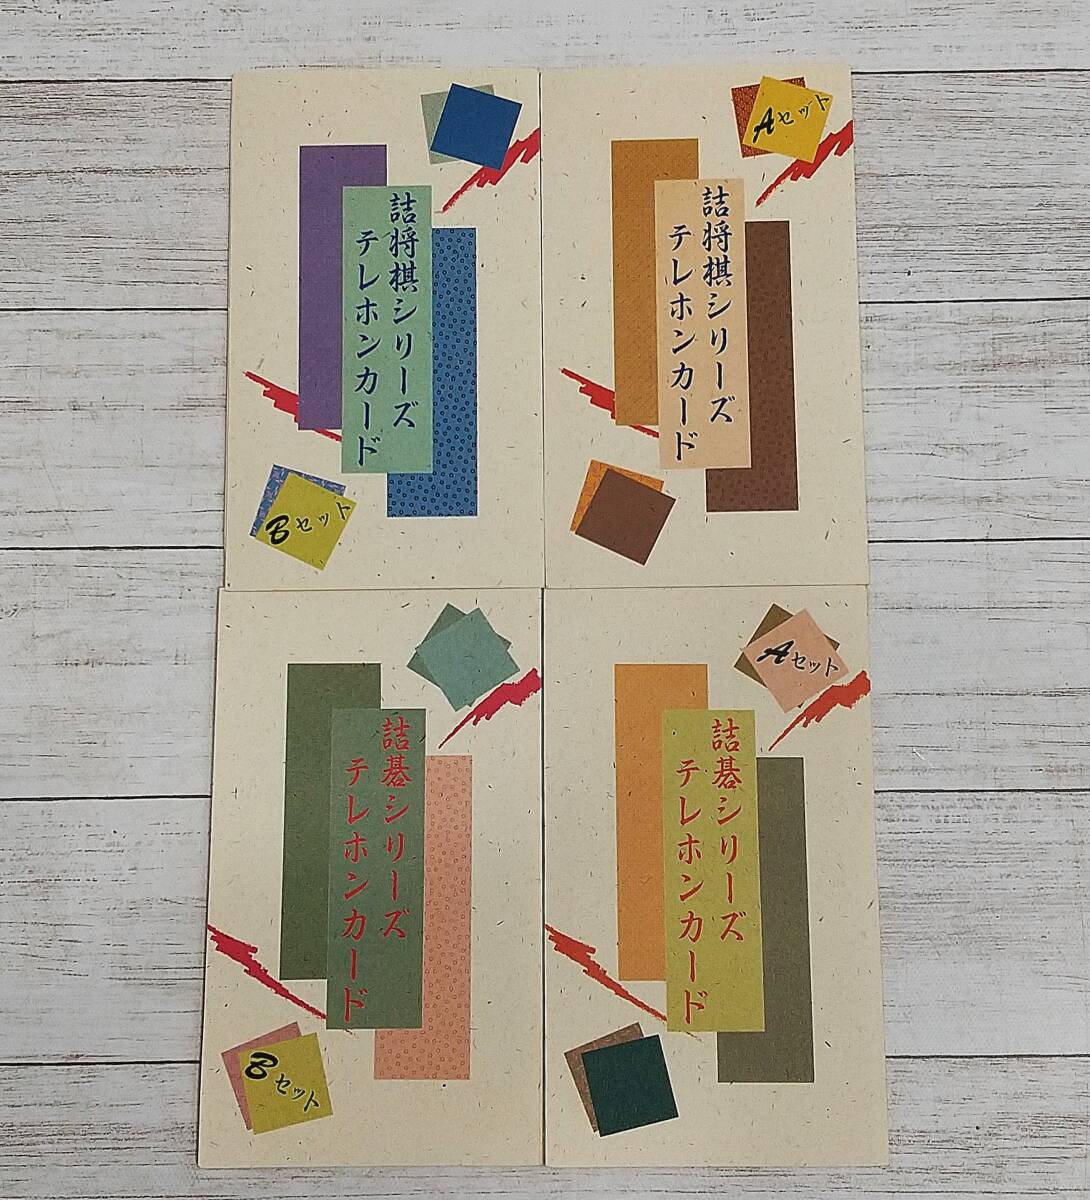 詰将棋シリーズ
テレホンカード
Bセット
Aセット
詰将棋シリーズ
テレホンカード
詰碁シリーズ
テレホンカード
Bセット
Aセット
詰碁シリーズ
テレホンカード